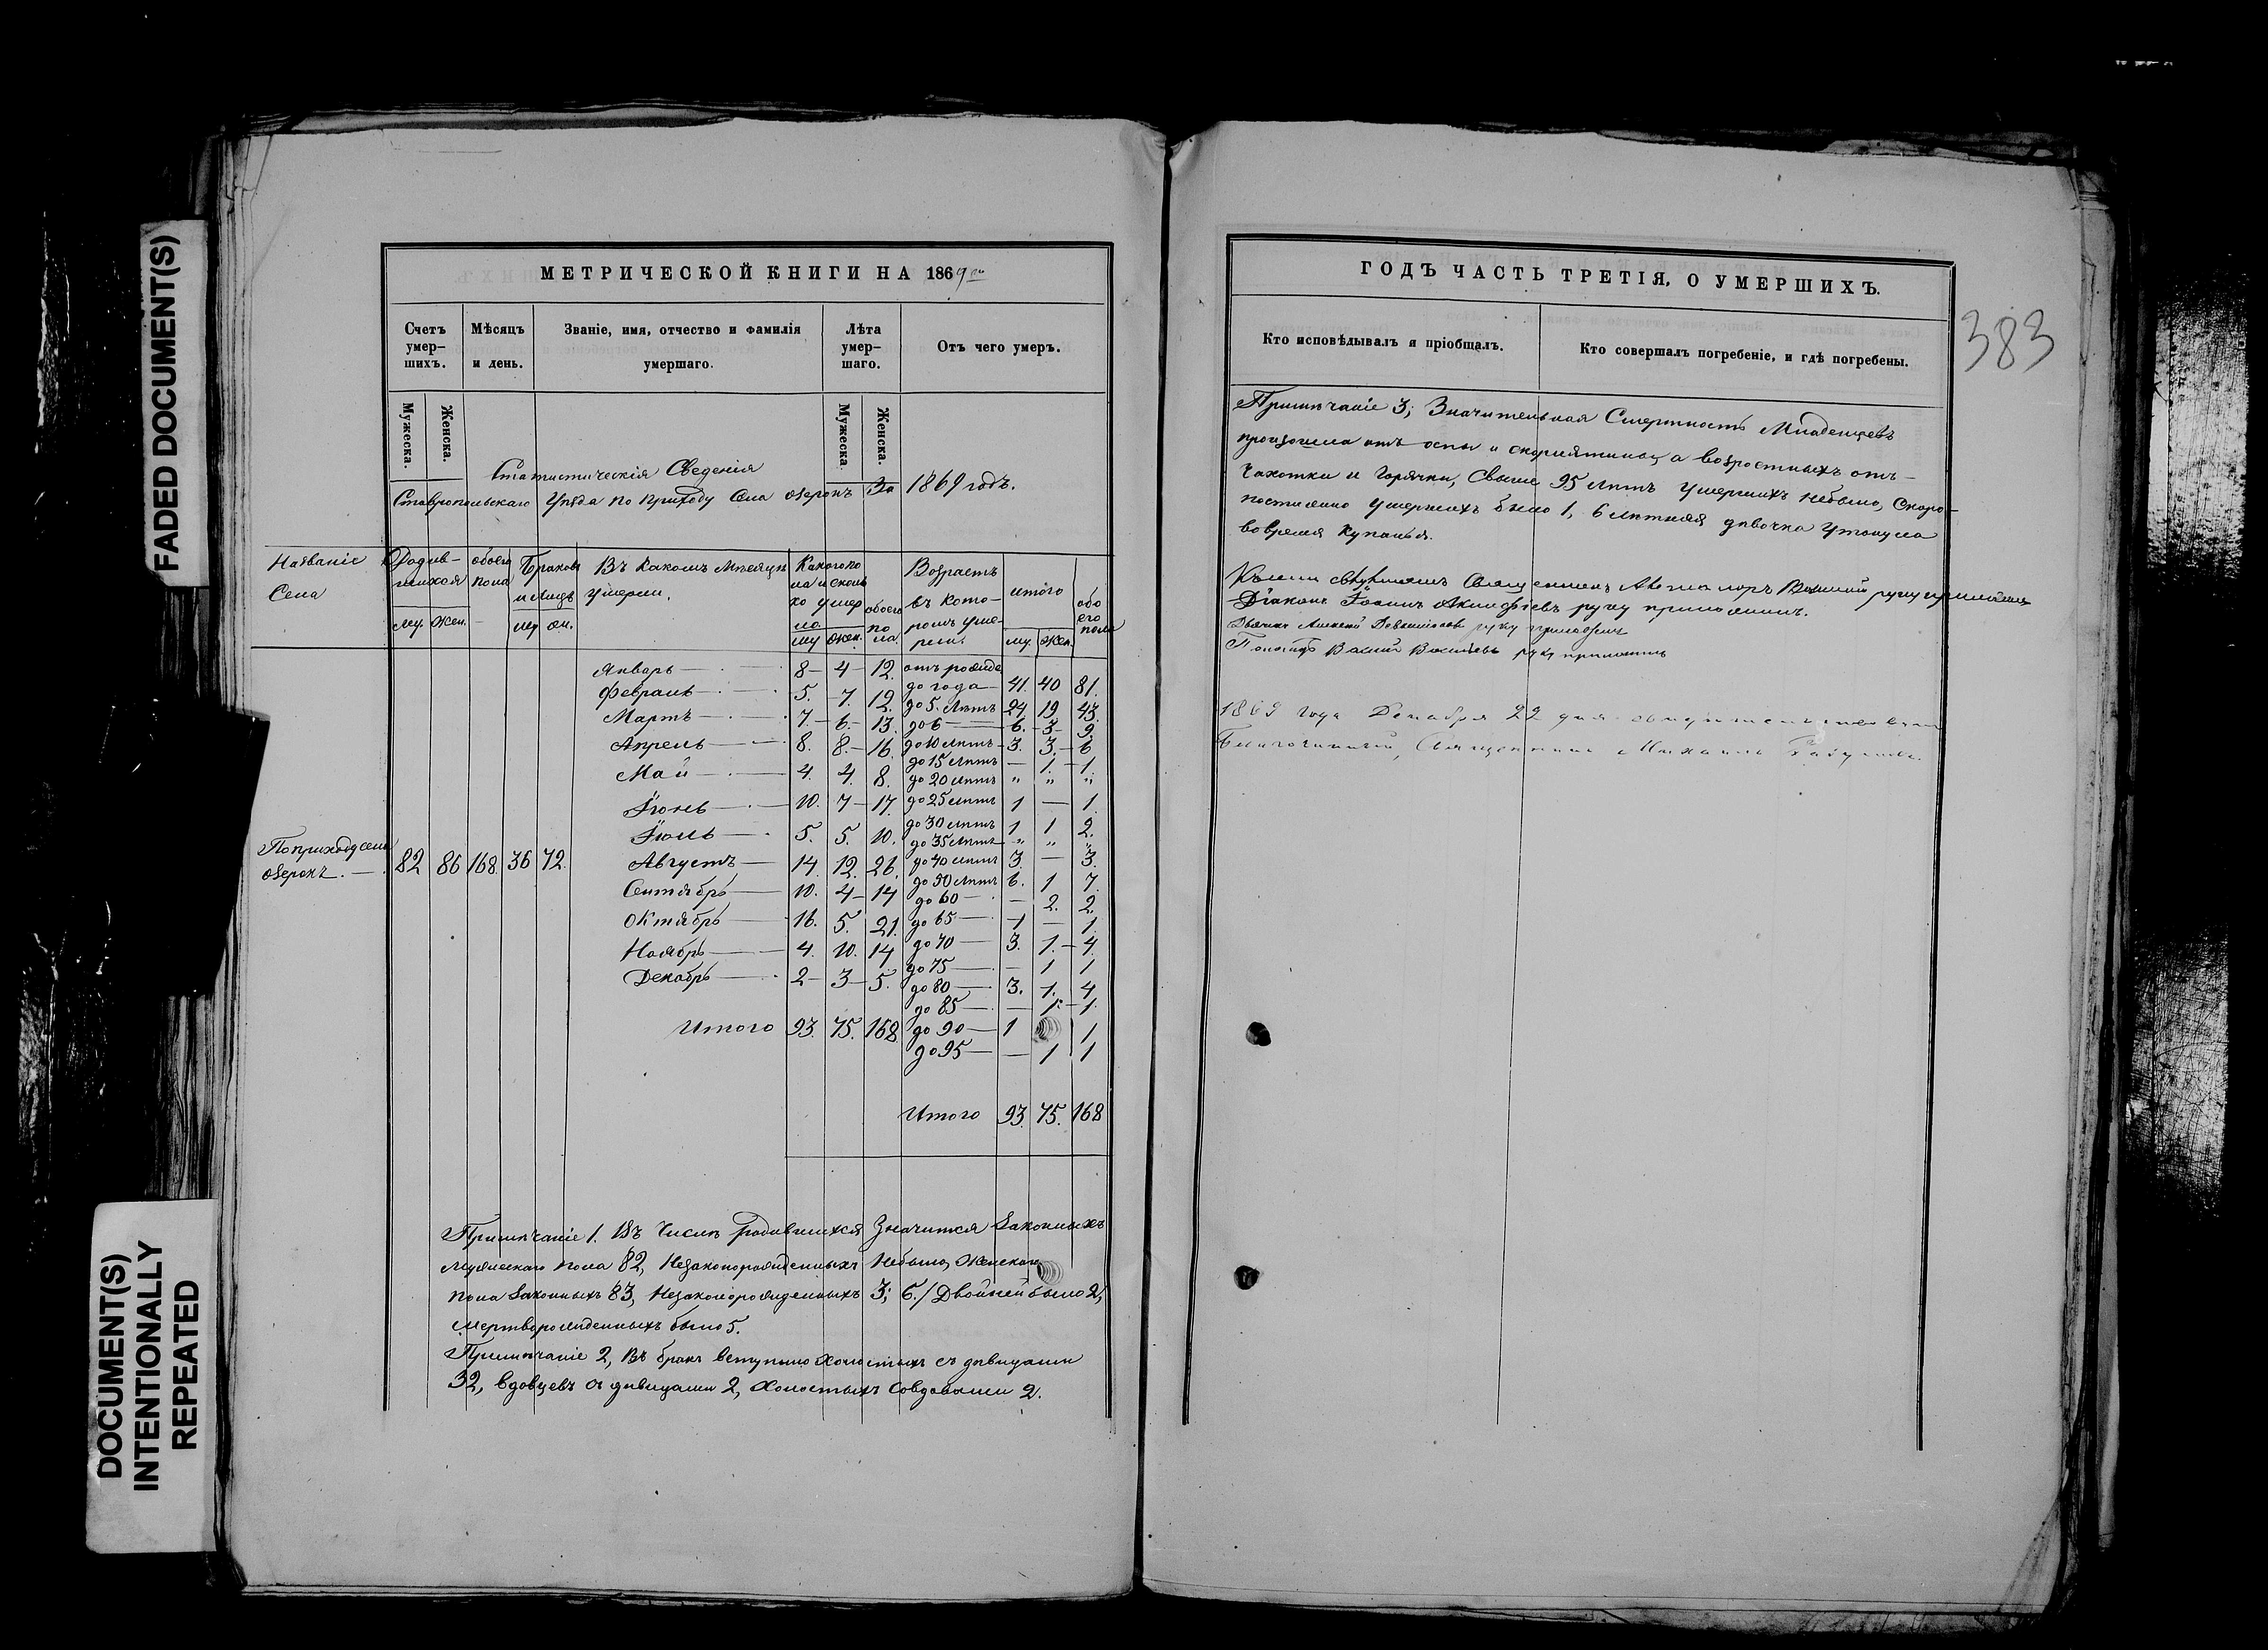 FADED DOCUMENT(S)
DOCUMENT(S)
INTENTIONALLY
REPEATED
МЕТРИЧЕСКОЙ КНИГИ НА 1869
Счетъ умер-шихъ.
Мѣсяцъ и день.
Званіе, имя, отчество и фамилія умершаго.
Лѣта умер-шаго.
Отъ чего умеръ.
Мужеска.
Женска.
Мужеска
Женска.
Статистическія Сведенія
Ставропольскаго Уѣзда по приходу Села Озерокъ За 1869 годъ.
Названіе Села
Родив-шихся му. жен.
обоего пола
Браковъ и лицъ
Въ какомъ мѣсяцѣ умерли.
Какого по-ла и сколь-ко умер-ло му жен.
обоего по ла
Возрастъ въ кото-ромъ уме-рли.
итого му. жен.
обо его пола
По приходу села Озерокъ. 82 86 168 36 72.
Январь 8 4 12.
Февраль 5. 7. 12.
Мартъ 7. 6. 13.
Апрель 8. 8. 16.
Май 4. 4. 8.
Іюнь 10. 7 17.
Іюль 5. 5. 10.
Августъ 14. 12. 26.
Сентябрь 10. 4 14
Октябрь 16. 5. 21.
Ноябрь 4. 10. 14
Декабрь 2 3 5.
Итого 93. 75. 168.
отъ рожде до года 41. 40 81.
до 5. лѣтъ 24 19 43.
до 6 6. 3 9.
до 10 лѣтъ 3. 3. 6
до 15 лѣтъ — 1. 1.
до 20 лѣтъ " " "
до 25 лѣтъ 1 — 1.
до 30 лѣтъ 1 1 2.
до 35 лѣтъ " " "
до 40 лѣтъ 3. — 3.
до 50 лѣтъ 6. 1 7.
до 60 — 2. 2.
до 65 1 — 1.
до 70 3. 1. 4.
до 75 — 1 1
до 80 3. 1. 4
до 85 — 1. 1.
до 90 1 1
до 95 — 1 1
Итого 93. 75. 168
Примѣчаніе 1. Въ числѣ родившихся Значится Законныхъ
мужескаго пола 82, Незаконорожденныхъ небыло, Женскаго
пола Законныхъ 83, Незаконорожденныхъ 3; б./ Двойней было 2,
мертворожденныхъ было 5.
Примѣчаніе 2, Въ бракъ вступило холостыхъ съ дѣвицами
32, вдовцевъ съ дѣвицами 2, Холостыхъ совдовами 2.
ГОДЪ ЧАСТЬ ТРЕТІЯ, О УМЕРШИХЪ.
383
Кто исповѣдывалъ я пріобщалъ.
Кто совершалъ погребеніе, и гдѣ погребены.
Примѣчаніе 3; Значительная Смертность Младенцевъ
произошла отъ оспы и скарлятины, а возростныхъ отъ
Чахотки и Горячки, Свыше 95 лѣтъ Умершихъ небыло, Скоро-
постижно Умершихъ было 1, 6 лѣтняя дѣвочка Утонула
вовремя Купанья.
Священникъ
Діаконъ Іоаннъ руку приложилъ.
руку приложилъ
руку приложилъ
1869 Года Декабря 22 дня
Благочинный, Священникъ Михаилъ